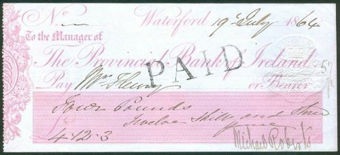 No Waterford 19 July 1864
To the Manager of
The Provincial Bank of Ireland,
PAID
Pay Mr Henry or Bearer
Four Pounds
Twelve Shillgs and Three
£ 4.12.3
Michael Roberts